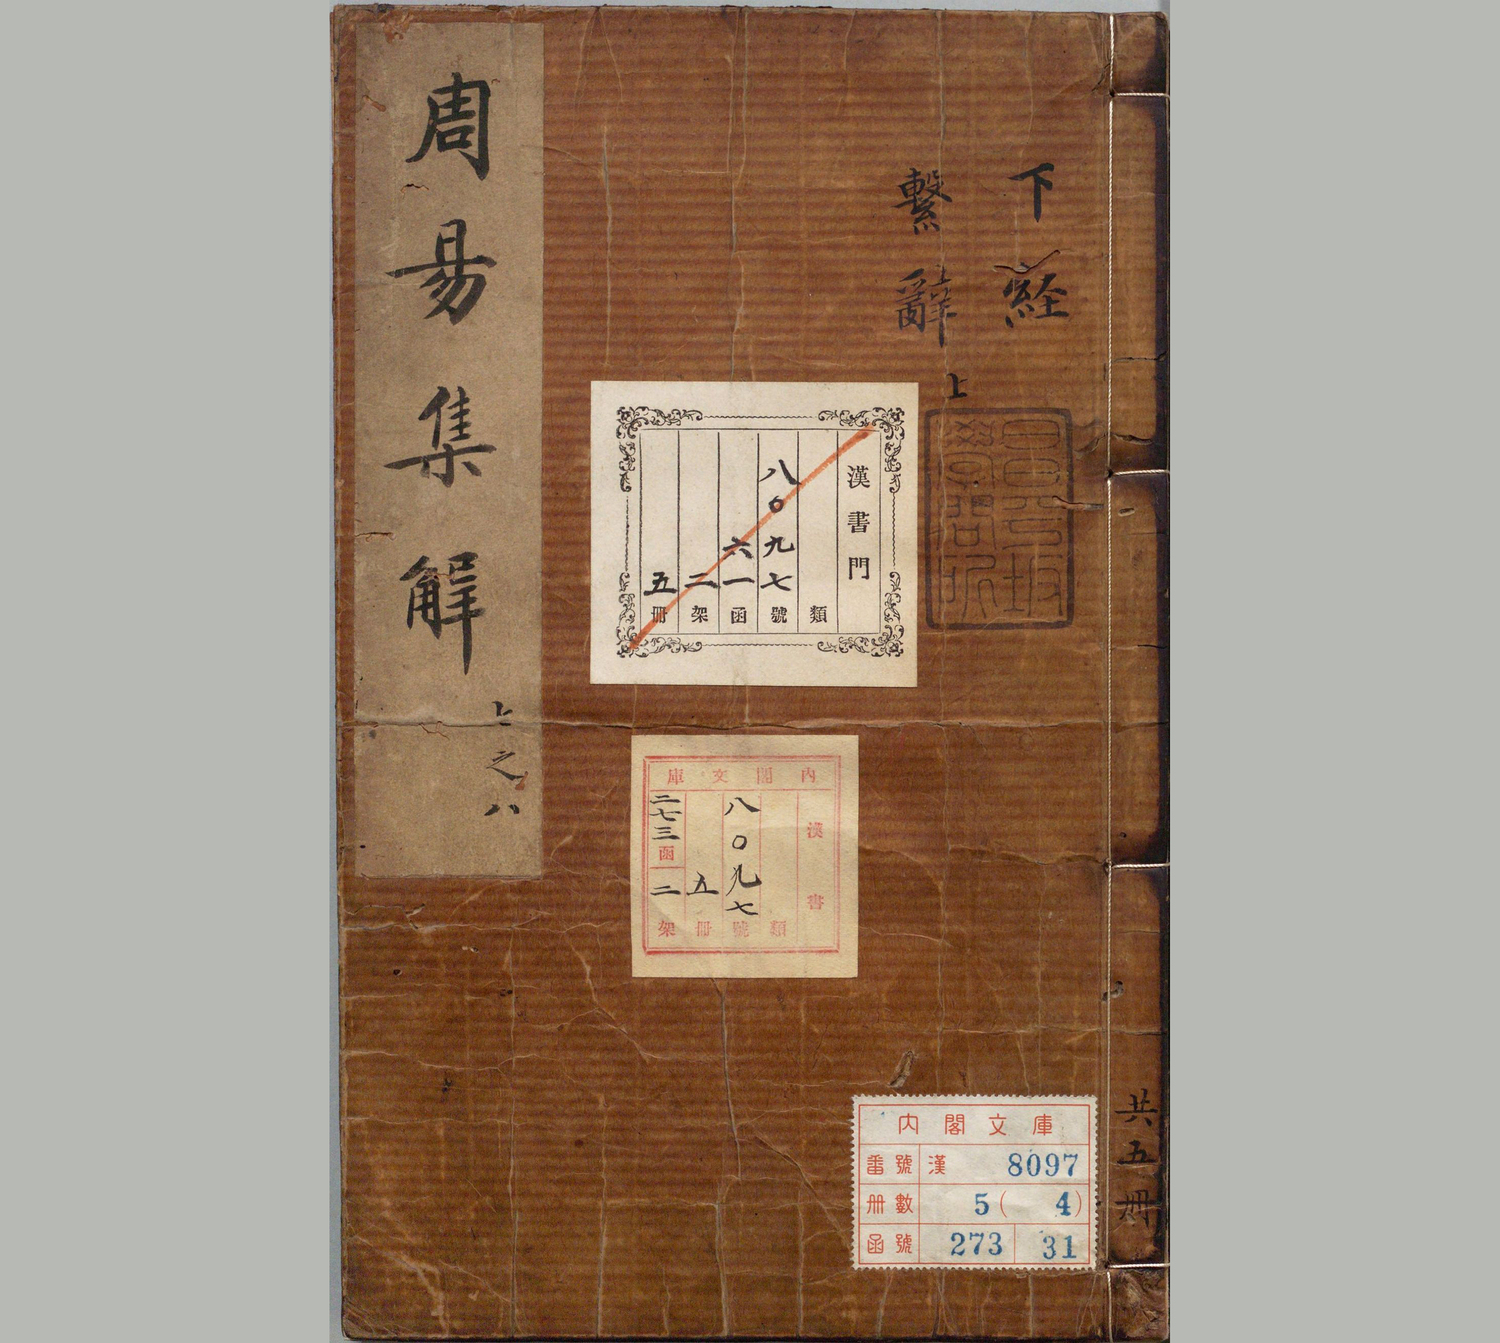 周易集解
上之八
下経
繫辭上
昌平坂
學問所
漢書門
類
八〇九七號
六一函
二架
五冊
內閣文庫
漢書
類
八〇九七號
五冊
二七三函
二架
共五冊
內閣文庫
番號 漢 8097
册數 5(4)
函號 273 31